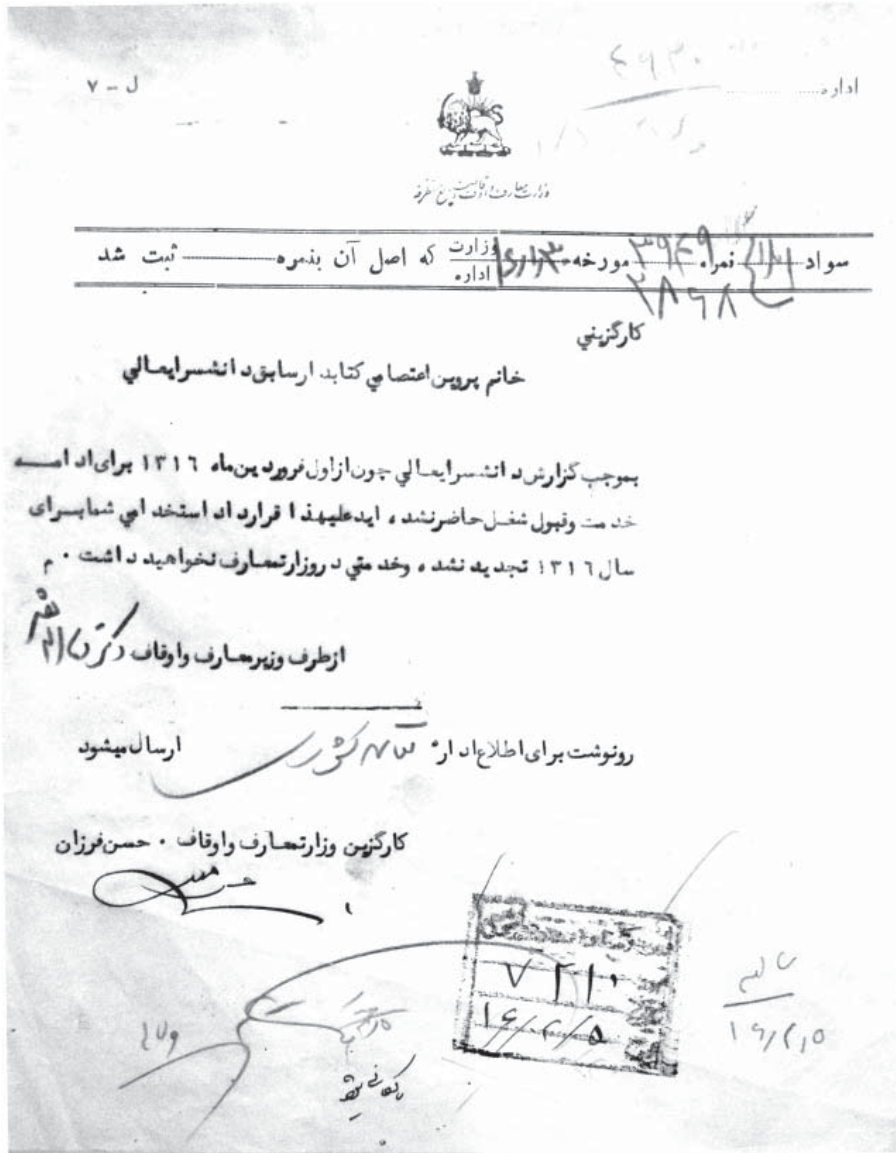 ل - ۷
اداره
وزارت معارف و اوقاف و صنایع مستظرفه
سواد نمره ۳۹۴۹ مورخه وزارت اداره که اصل آن بنمره ثبت شد
۲۸۶۸
کارگزیني
خانم پروین اعتصامي کتابدار سابق دانشسرایعالي
بموجب گزارش دانشسرایعالي چون از اول فروردین ماه ۱۳۱۶ برای ادامه
خدمت و قبول شغل حاضر نشده اید علیهذا قرارداد استخدامي شما برای
سال ۱۳۱۶ تجدید نشده و خدمتي در وزارتمعارف نخواهید داشت ۰ م
از طرف وزیر معارف و اوقاف دکتر
رونوشت برای اطلاع اداره کشوری ارسال میشود
کارگزین وزارتمعارف و اوقاف ۰ حسن فرزان
۷۲۱۰
۱۶/۲/۵
۱۶/۲/۵